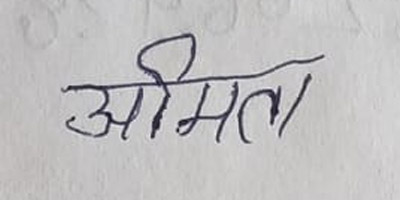 अमिता